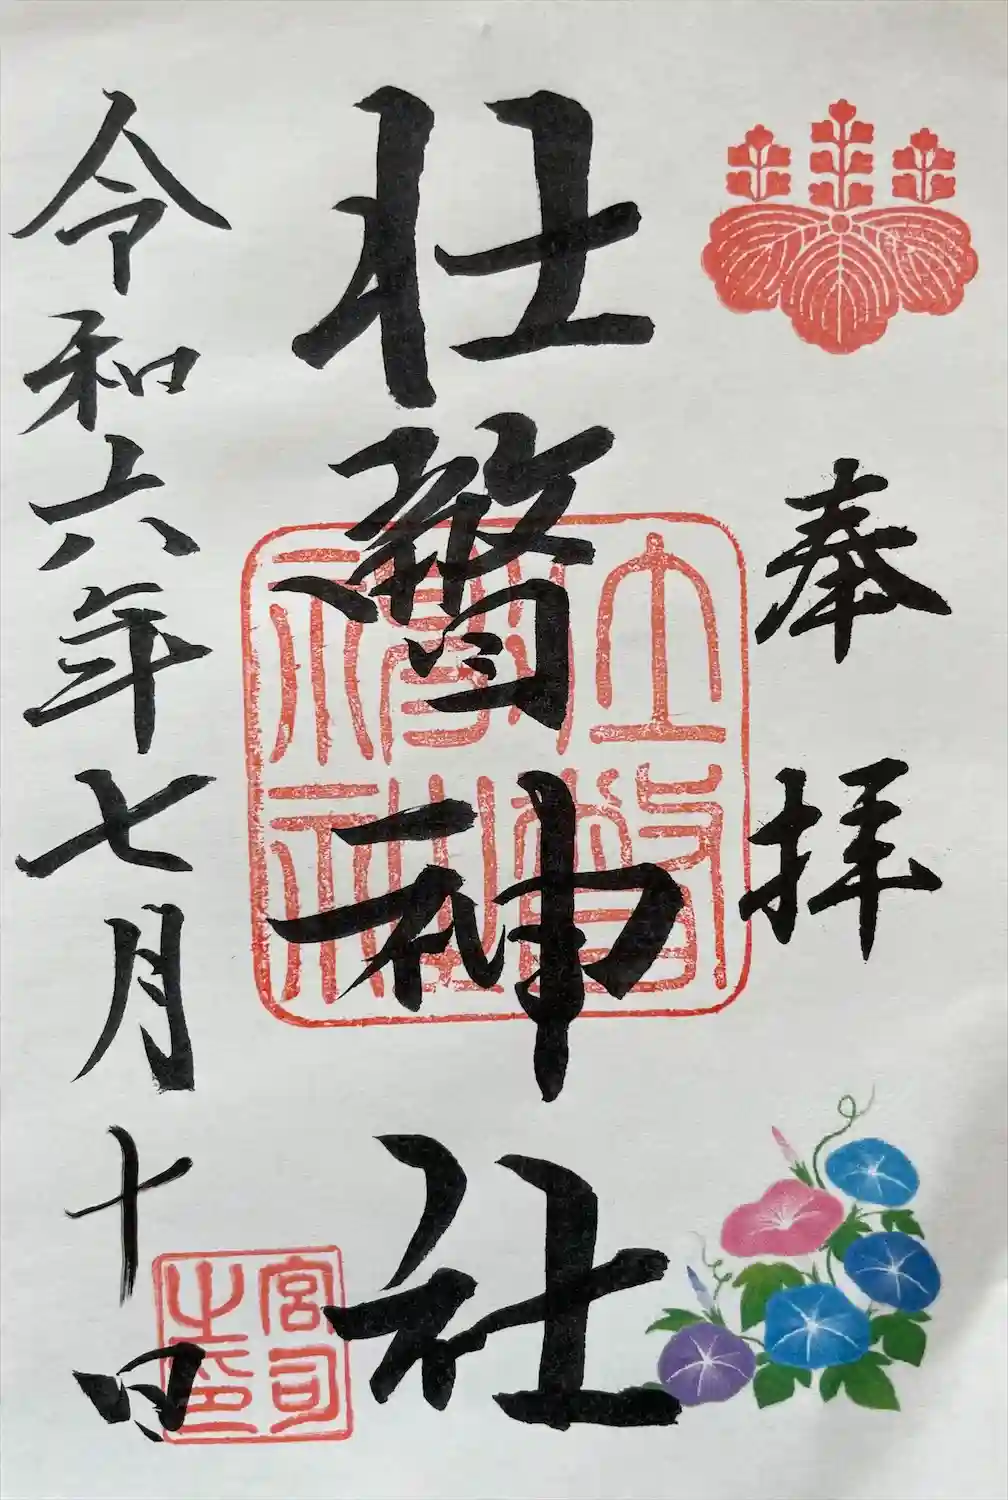 奉拝
壮瞥神社
壮瞥
神社
令和六年七月十日
宮司
之印